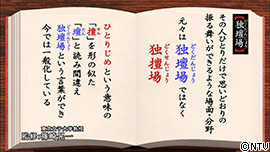 【独壇場】
その人ひとりだけで思いどおりの
振る舞いができるような場面・分野
どくだんじょう
元々は 独壇場 ではなく
どくせんじょう
独擅場
ひとりじめ という意味の
「擅」を形の似た
「壇」と読み間違え
独壇場 という言葉ができ
今では一般化している
監修・篠崎晃一
©NTV